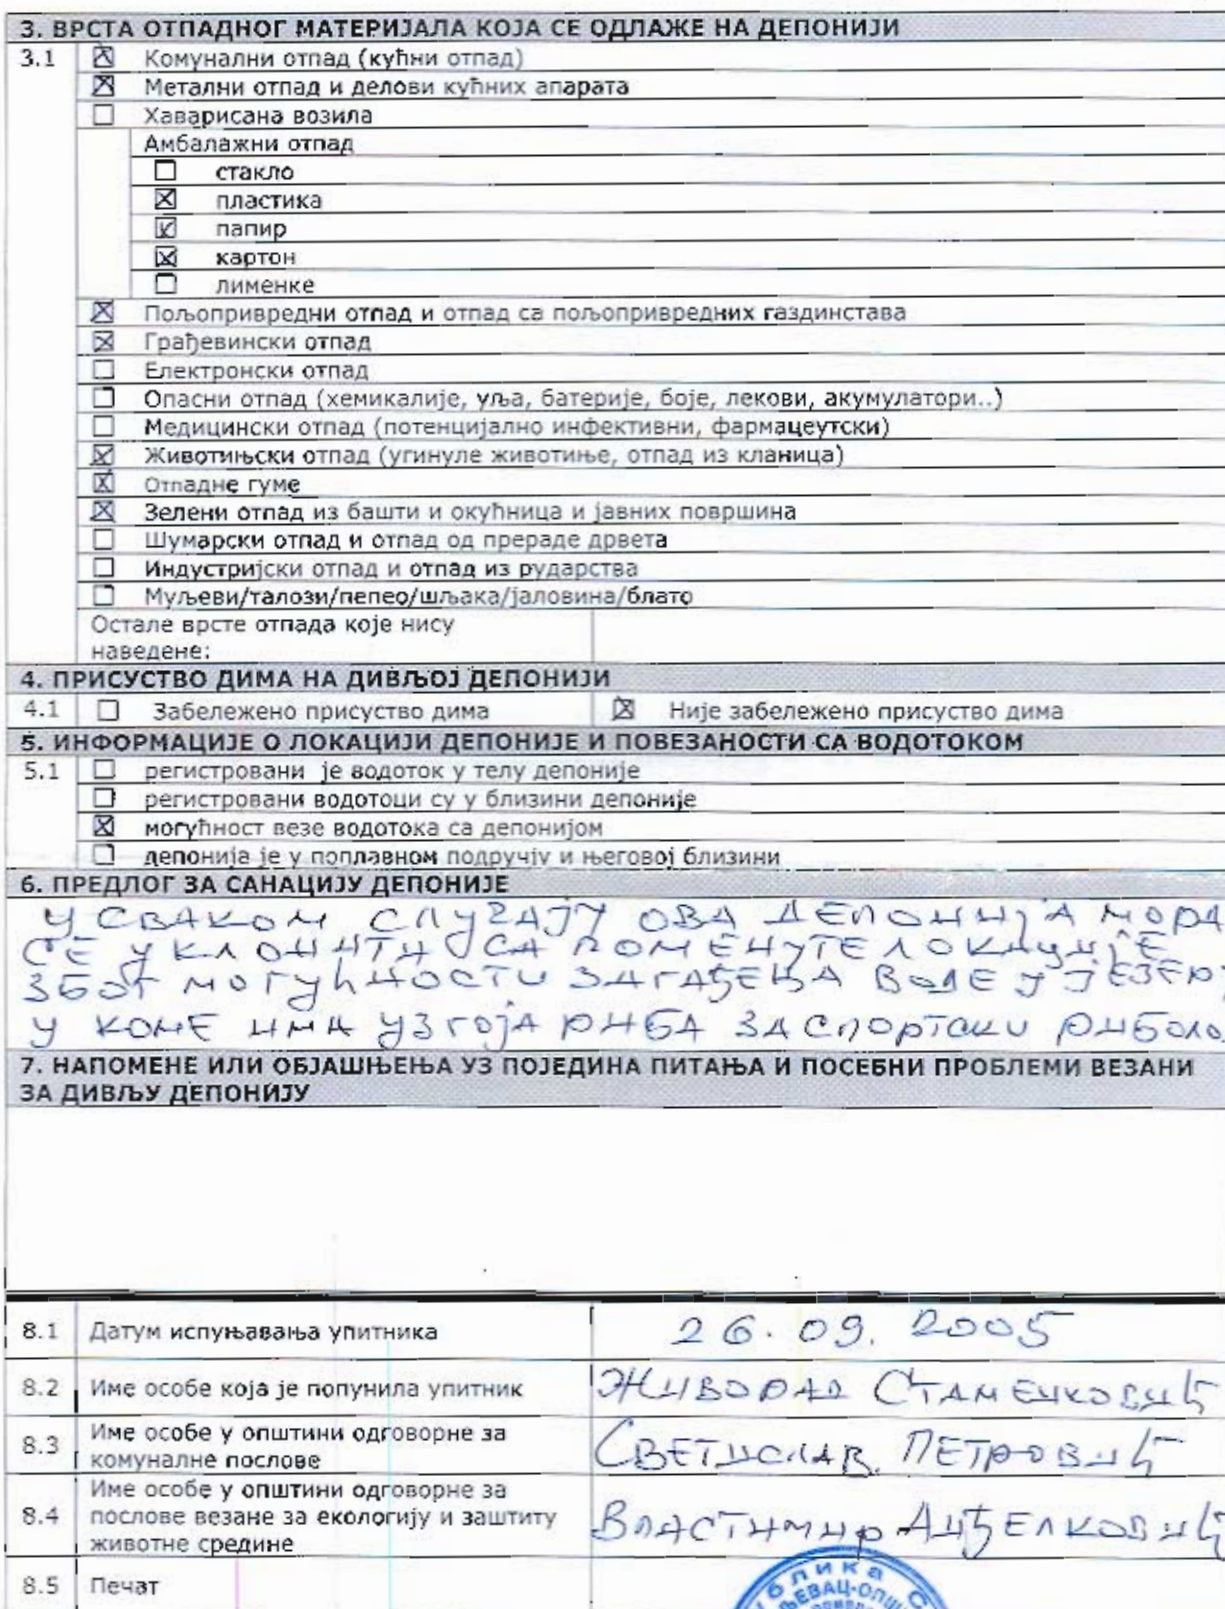 3. ВРСТА ОТПАДНОГ МАТЕРИЈАЛА КОЈА СЕ ОДЛАЖЕ НА ДЕПОНИЈИ
3.1 ☒ Комунални отпад (кућни отпад)
☒ Метални отпад и делови кућних апарата
☐ Хаварисана возила
Амбалажни отпад
☐ стакло
☒ пластика
☒ папир
☒ картон
☐ лименке
☒ Пољопривредни отпад и отпад са пољопривредних газдинстава
☒ Грађевински отпад
☐ Електронски отпад
☐ Опасни отпад (хемикалије, уља, батерије, боје, лекови, акумулатори..)
☐ Медицински отпад (потенцијално инфективни, фармацеутски)
☒ Животињски отпад (угинуле животиње, отпад из кланица)
☒ Отпадне гуме
☒ Зелени отпад из башти и окућница и јавних површина
☐ Шумарски отпад и отпад од прераде дрвета
☐ Индустријски отпад и отпад из рударства
☐ Муљеви/талози/пепео/шљака/јаловина/блато
Остале врсте отпада које нису
наведене:
4. ПРИСУСТВО ДИМА НА ДИВЉОЈ ДЕПОНИЈИ
4.1 ☐ Забележено присуство дима ☒ Није забележено присуство дима
5. ИНФОРМАЦИЈЕ О ЛОКАЦИЈИ ДЕПОНИЈЕ И ПОВЕЗАНОСТИ СА ВОДОТОКОМ
5.1 ☐ регистровани је водоток у телу депоније
☐ регистровани водотоци су у близини депоније
☒ могућност везе водотока са депонијом
☐ депонија је у поплавном подручју и његовој близини
6. ПРЕДЛОГ ЗА САНАЦИЈУ ДЕПОНИЈЕ
У СВАКОМ СЛУЧАЈУ ОВА ДЕПОНИЈА МОРА
СЕ УКЛОНИТИ СА ПОМЕНУТЕ ЛОКАЦИЈЕ
ЗБОГ МОГУЋНОСТИ ЗАГАЂЕЊА ВОДЕ У ЈЕЗЕРУ
У КОМЕ ИМА УЗГОЈА РИБА ЗА СПОРТСКИ РИБОЛО
7. НАПОМЕНЕ ИЛИ ОБЈАШЊЕЊА УЗ ПОЈЕДИНА ПИТАЊА И ПОСЕБНИ ПРОБЛЕМИ ВЕЗАНИ
ЗА ДИВЉУ ДЕПОНИЈУ
8.1 Датум испуњавања упитника 26.09.2005
8.2 Име особе која је попунила упитник ЖИВОРАД СТАМЕНКОВИЋ
8.3 Име особе у општини одговорне за
комуналне послове СВЕТИСЛАВ ПЕТРОВИЋ
8.4 Име особе у општини одговорне за
послове везане за екологију и заштиту
животне средине ВЛАСТИМИР АНЂЕЛКОВИЋ
8.5 Печат